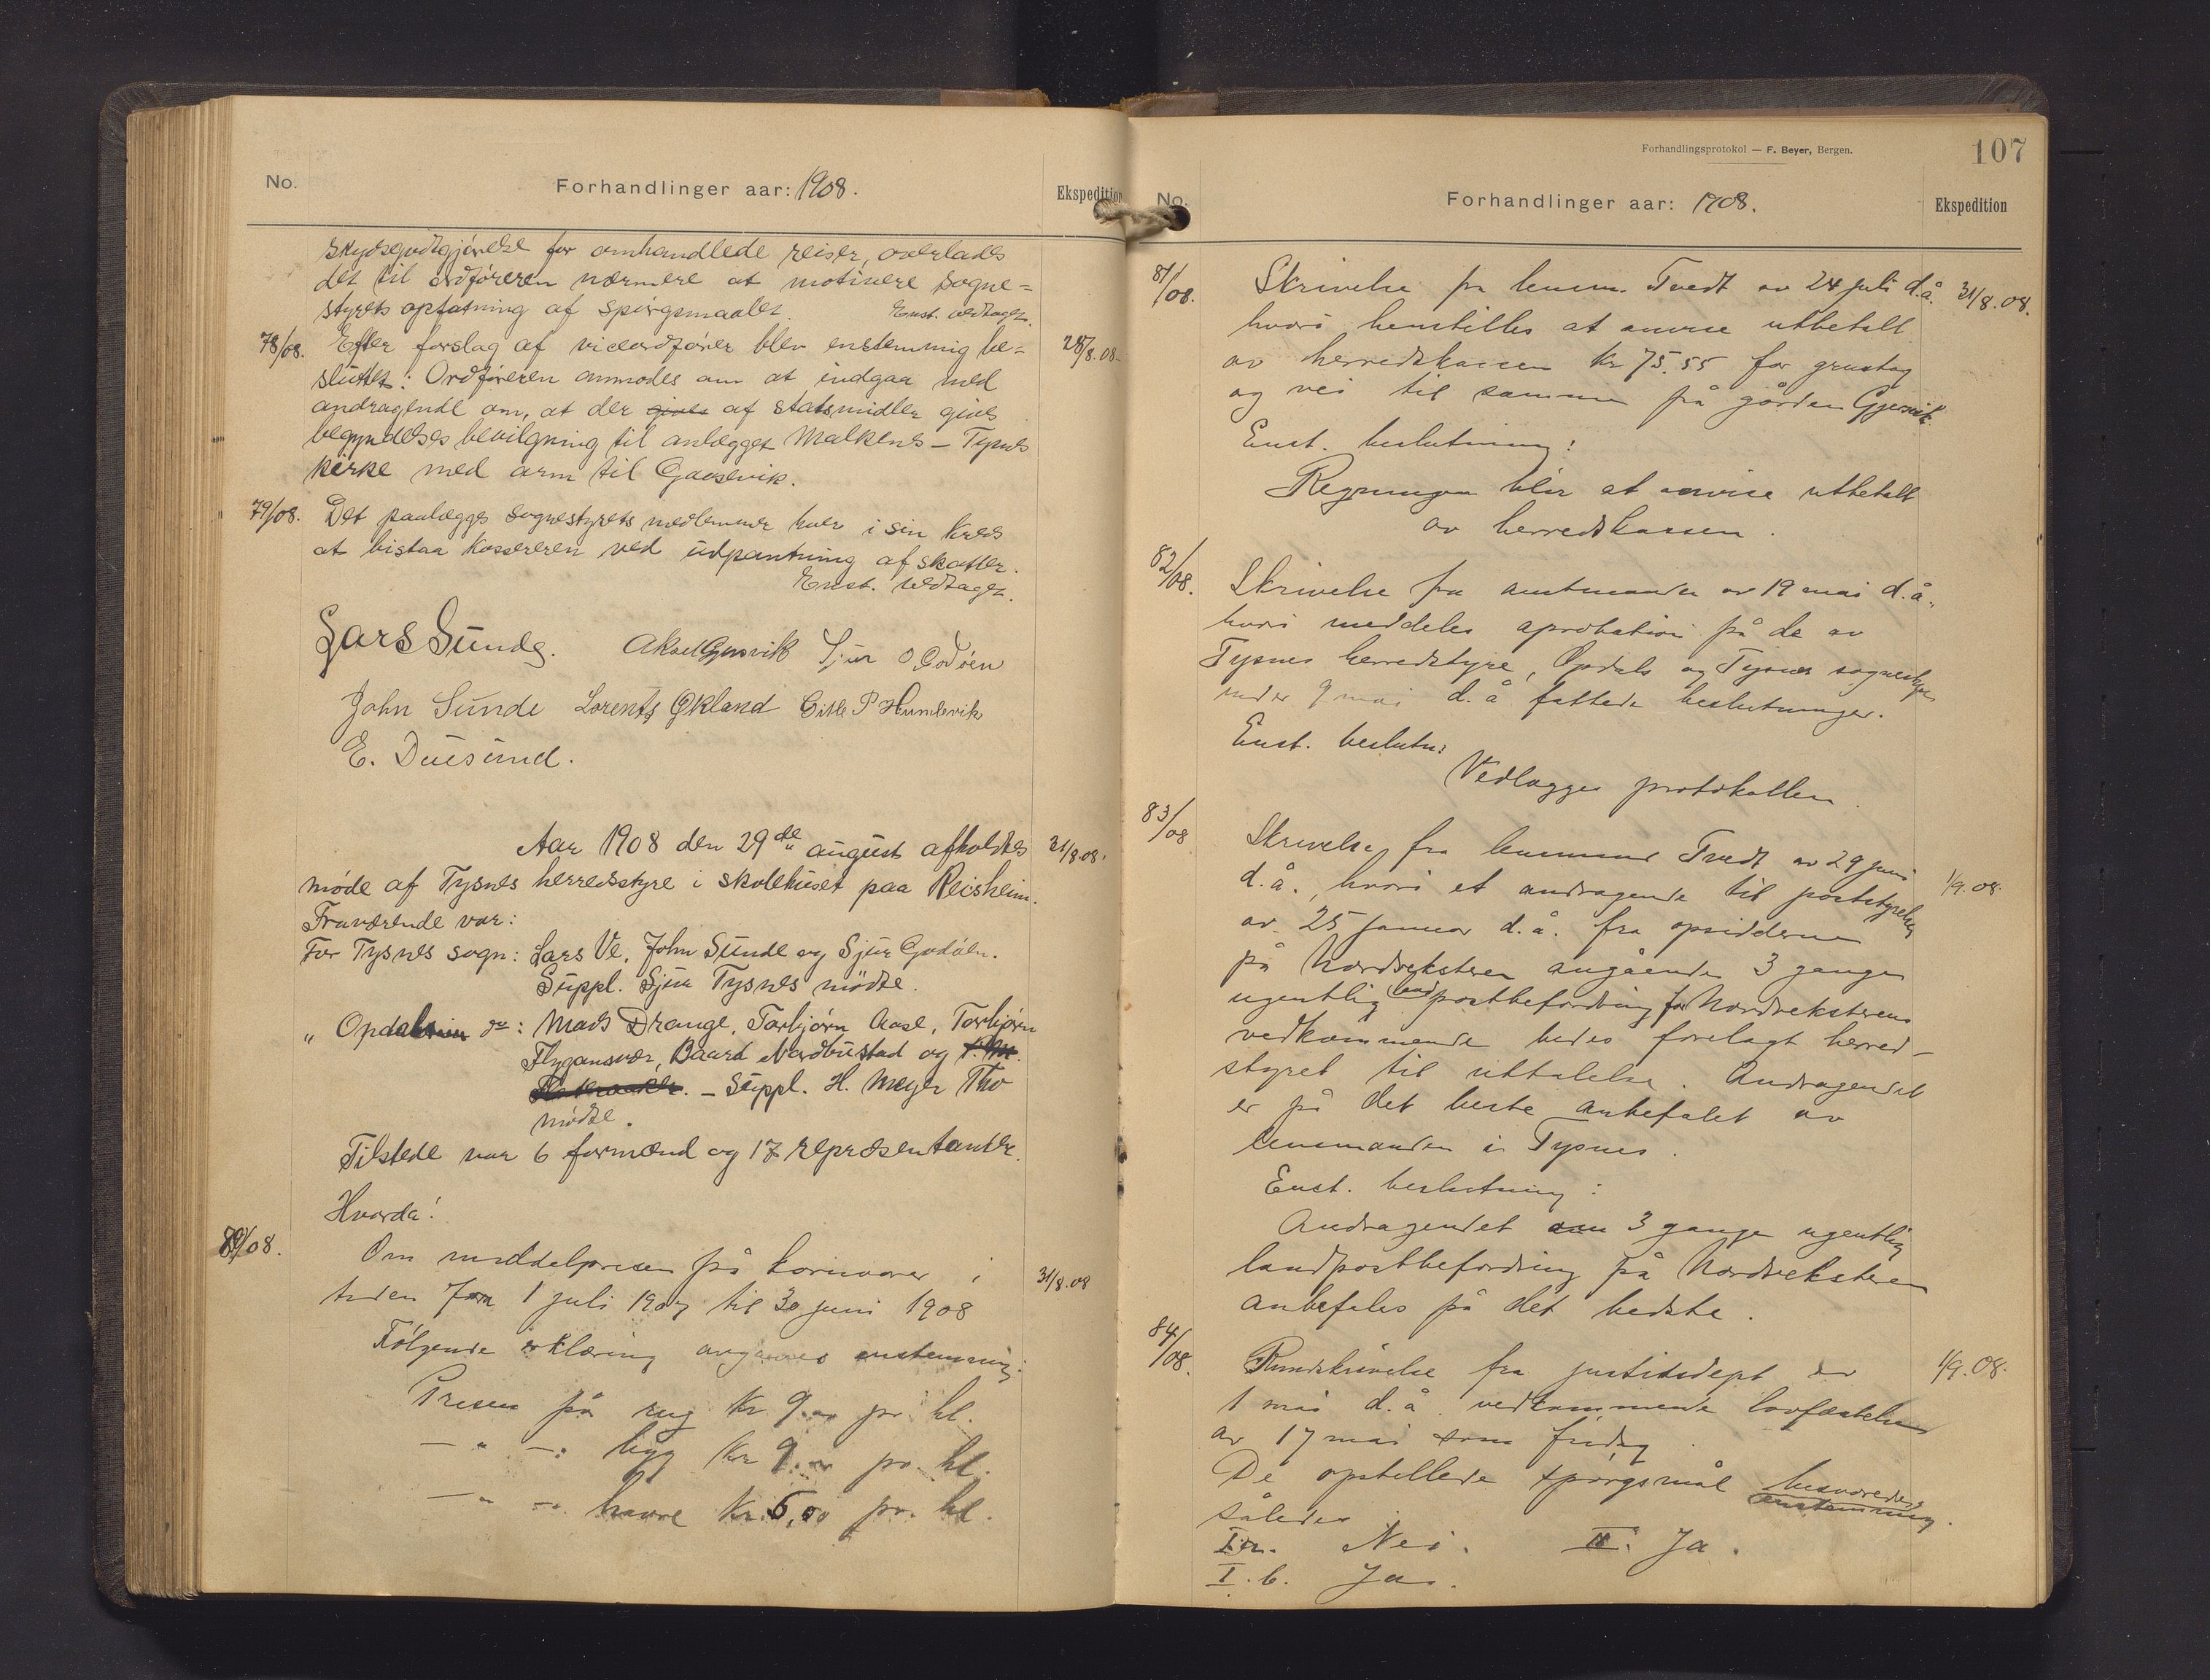 No. Forhandlinger aar: 1908. Ekspedition
skydsgodtgjørelse for omhandlede reiser, overlades
det til ordføreren nærmere at motivere Sogne=
styrets opfatning af spørgsmaalet. Enst. vedtaget.
78/08. Efter forslag af viceordfører blev enstemmig be= 28/8.08
sluttet: Ordføreren anmodes om at indgaa med
andragende om, at der gives af statsmidler gives
begyndelsesbevilgning til anlægget Malkens – Tysnes
kirke med arm til Gaasevik.
79/08. Det paalægges Sognestyrets medlemmer hver i sin kreds
at bistaa kassereren ved udpantning af skatter.
Enst. vedtaget.
Lars Sunde. Aksel Gjersvik Sjur O Godøen
John Sunde Lorents Økland Gitle P Humlevik
E. Duesund.
Aar 1908 den 29de august afholdtes 31/8.08.
møde af Tysnes herredsstyre i skolehuset paa Reisheim.
Fraværende var:
For Tysnes sogn: Lars Ve, John Sunde og Sjur Godøen.
Suppl. Sjur Tysnes mødte.
„ Opdal do: Mads Drange, Torbjørn Aase, Torbjørn
Flygansvær, Baard Nordbustad og
– Suppl. H. Meyer Tho
mødte.
Tilstede var 6 formænd og 17 repræsentanter.
Hvorda:
80/08. Om middelprisen på kornvarer i 31/8.08
tiden fra 1 juli 1907 til 30 juni 1908
Følgende erklæring avgaves enstemmig:
Prisen på rug kr 9.00 pr. hl.
— " —: byg kr 9.00 pr. hl.
— " — havre kr. 5,00 pr. hl.
Forhandlingsprotokol — F. Beyer, Bergen. 107
No. Forhandlinger aar: 1908. Ekspedition
81/08. Skrivelse fra lensm. Tvedt av 24 juli d.å. 31/8.08.
hvori henstilles at anvise utbetalt
av herredskassen kr 75.55 for grustag
og vei til samme på gården Gjersvik.
Enst. beslutning:
Regningen blir at anvise utbetalt
av herredskassen.
82/08. Skrivelse fra amtmanden av 19 mai d.å.
hvori meddeles aprobation på de av
Tysnes herredstyre, Opdals og Tysnes sognestyre
under 9 mai d.å fattede beslutninger.
Enst. beslutn:
Vedlægges protokollen.
83/08 Skrivelse fra lensmand Tvedt av 29 juni
d.å., hvori et andragende til poststyrelsen 1/9.08.
av 25 januar d.å. fra opsidderne
på Nordreksteren angående 3 gange
ugentlig landpostbefordring for Nordreksterens
vedkommende bedes forelagt herred-
styret til uttalelse. Andragendet
er på det beste anbefalet av
lensmanden i Tysnes.
Enst. beslutning:
Andragendet om 3 gange ugentlig
landpostbefordring på Nordreksteren
anbefales på det bedste.
84/08. Rundskrivelse fra justitsdept av 1/9.08.
1 mai d.å. vedkommende lovfæstelsen
av 17 mai som fridag.
De opstillede spørgsmål besvaredes
enstemmig.
således
I a. Nei. II. Ja.
I. b. Ja.